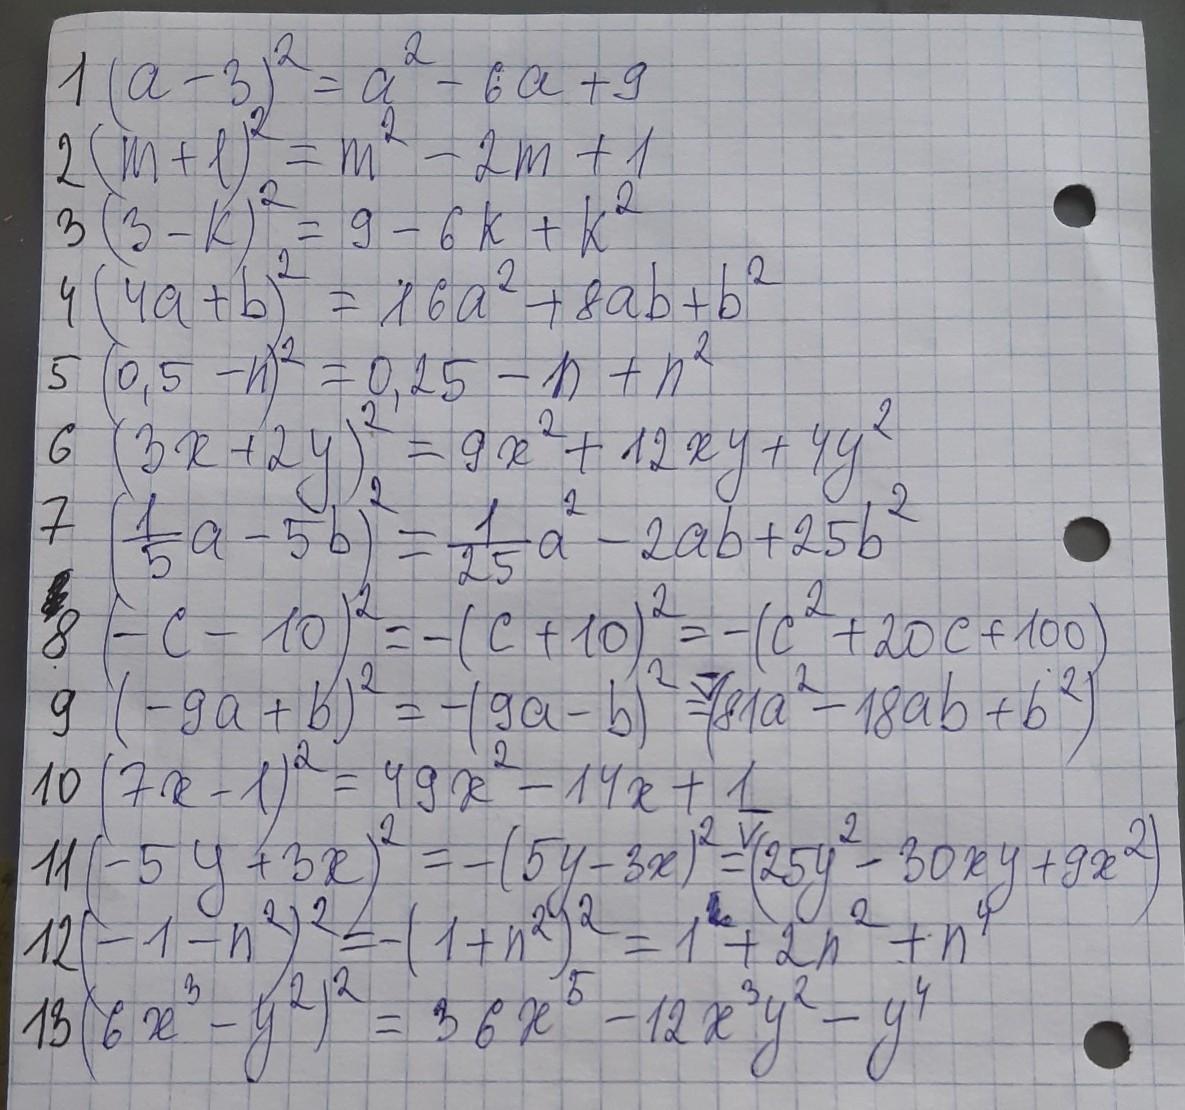 1 (a - 3)² = a² - 6a + 9
2 (m + 1)² = m² - 2m + 1
3 (3 - k)² = 9 - 6k + k²
4 (4a + b)² = 16a² + 8ab + b²
5 (0,5 - n)² = 0,25 - n + n²
6 (3x + 2y)² = 9x² + 12xy + 4y²
7 (1/5 a - 5b)² = 1/25 a² - 2ab + 25b²
8 (-c - 10)² = -(c + 10)² = -(c² + 20c + 100)
9 (-9a + b)² = -(9a - b)² = -(81a² - 18ab + b²)
10 (7x - 1)² = 49x² - 14x + 1
11 (-5y + 3x)² = -(5y - 3x)² = -(25y² - 30xy + 9x²)
12 (-1 - n²)² = -(1 + n²)² = 1 + 2n² + n⁴
13 (6x³ - y²)² = 36x⁵ - 12x³y² - y⁴